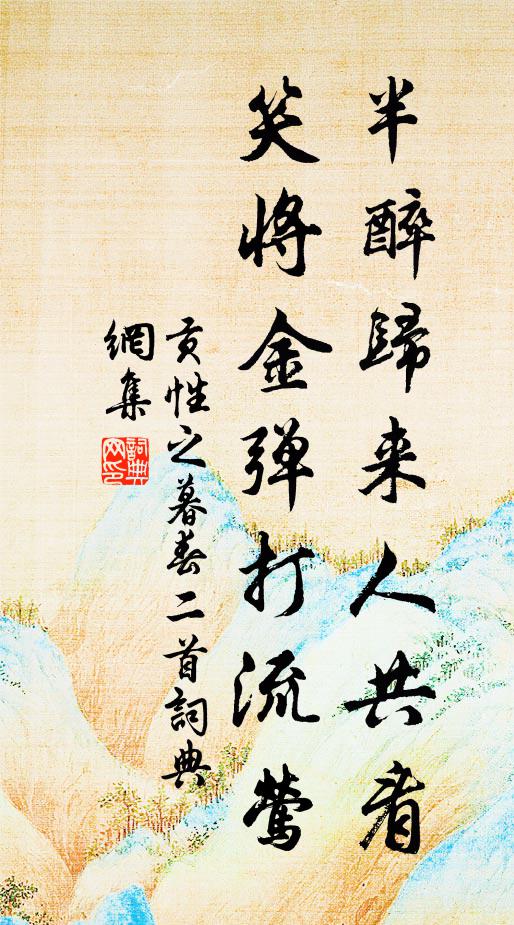 半醉歸来人共看
笑将金弹打流莺
贡性之暮春二首詞典
網集
詞典
网印